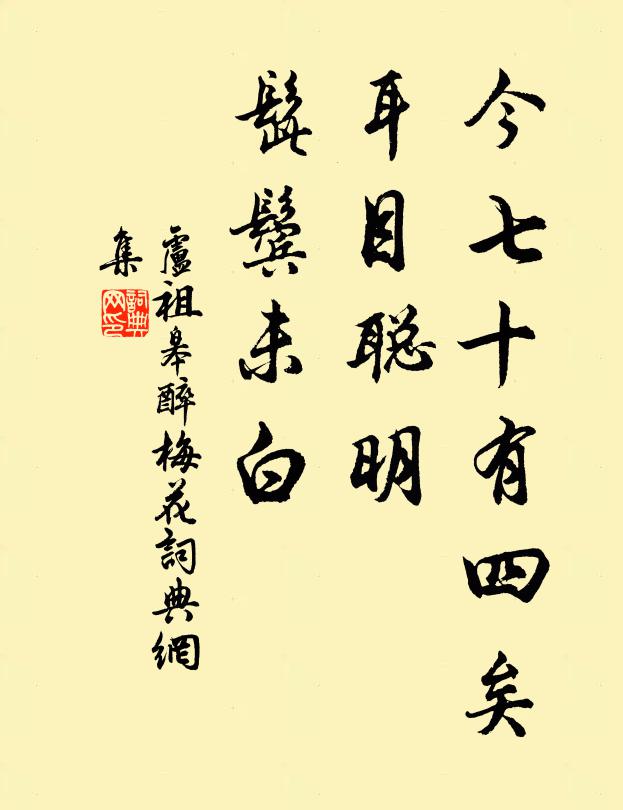 今七十有四矣
耳目聪明
髭鬓未白
盧祖皋醉梅花詞典網
集
詞典
网印